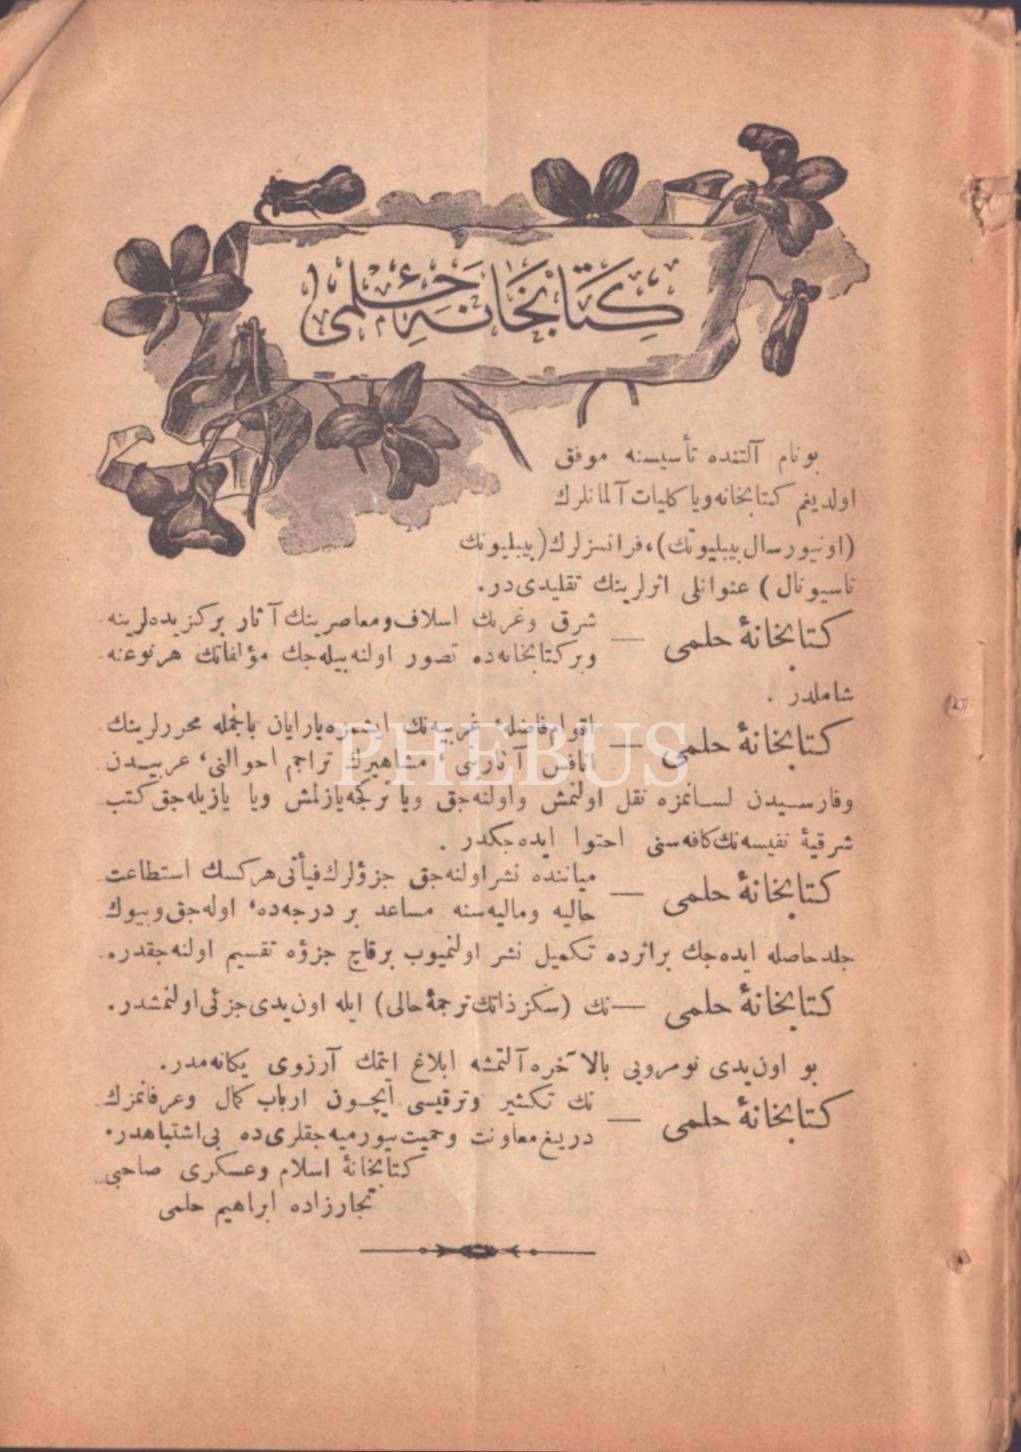 كتابخانهٔ حلمى
بو نام آلتنده تأسيسنه موفق
اولديغم كتابخانه ويا كليات آلمانلرك
(اونيورسال بيبليوتك)، فرانسزلرك (بيبليوتك
ناسيونال) عنوانلى اثرلرينك تقليدى در.
كتابخانهٔ حلمى — شرق وغربك اسلاف ومعاصرينك آثار بركزيده لرينه
وبر كتابخانه ده تصور اولنه بيله جك مؤلفاتك هر نوعنه
شاملدر .
كتابخانهٔ حلمى — اقوام فاضلهٔ غربيه نك ايشمزه يارايان بالجمله محررلرينك
انافس آثارى ، مشاهيرك تراجم احوالنى ، عربيدن
وفارسيدن لسانمزه نقل اولنمش واولنه جق ويا تركجه يازلمش ويا يازيله جق كتب
شرقيهٔ نفيسه نك كافه سنى احتوا ايده جكدر .
كتابخانهٔ حلمى — مياننده نشر اولنه جق جزؤلرك فيأتى هر كسك استطاعت
حاليه وماليه سنه مساعد بر درجه ده ، اوله جق وبيوك
جلد حاصله ايده جك بر اثرده تكميل نشر اولنميوب بر قاچ جزؤه تقسيم اولنه جقدر.
كتابخانهٔ حلمى — نك (سكز ذاتك ترجمهٔ حالى) ايله اون يدى جزئى اولنمشدر.
بو اون يدى نومرويى بالآخره آلتمشه ابلاغ ايتمك آرزوى يكانه مدر.
كتابخانهٔ حلمى — نك تكثير وترقيسى ايچون ارباب كمال وعرفانمزك
دريغ معاونت وحميت بيورميه جقلرى ده بى اشتباهدر.
كتابخانهٔ اسلام وعسكرى صاحبى
تجارزاده ابراهيم حلمى
PHEBUS